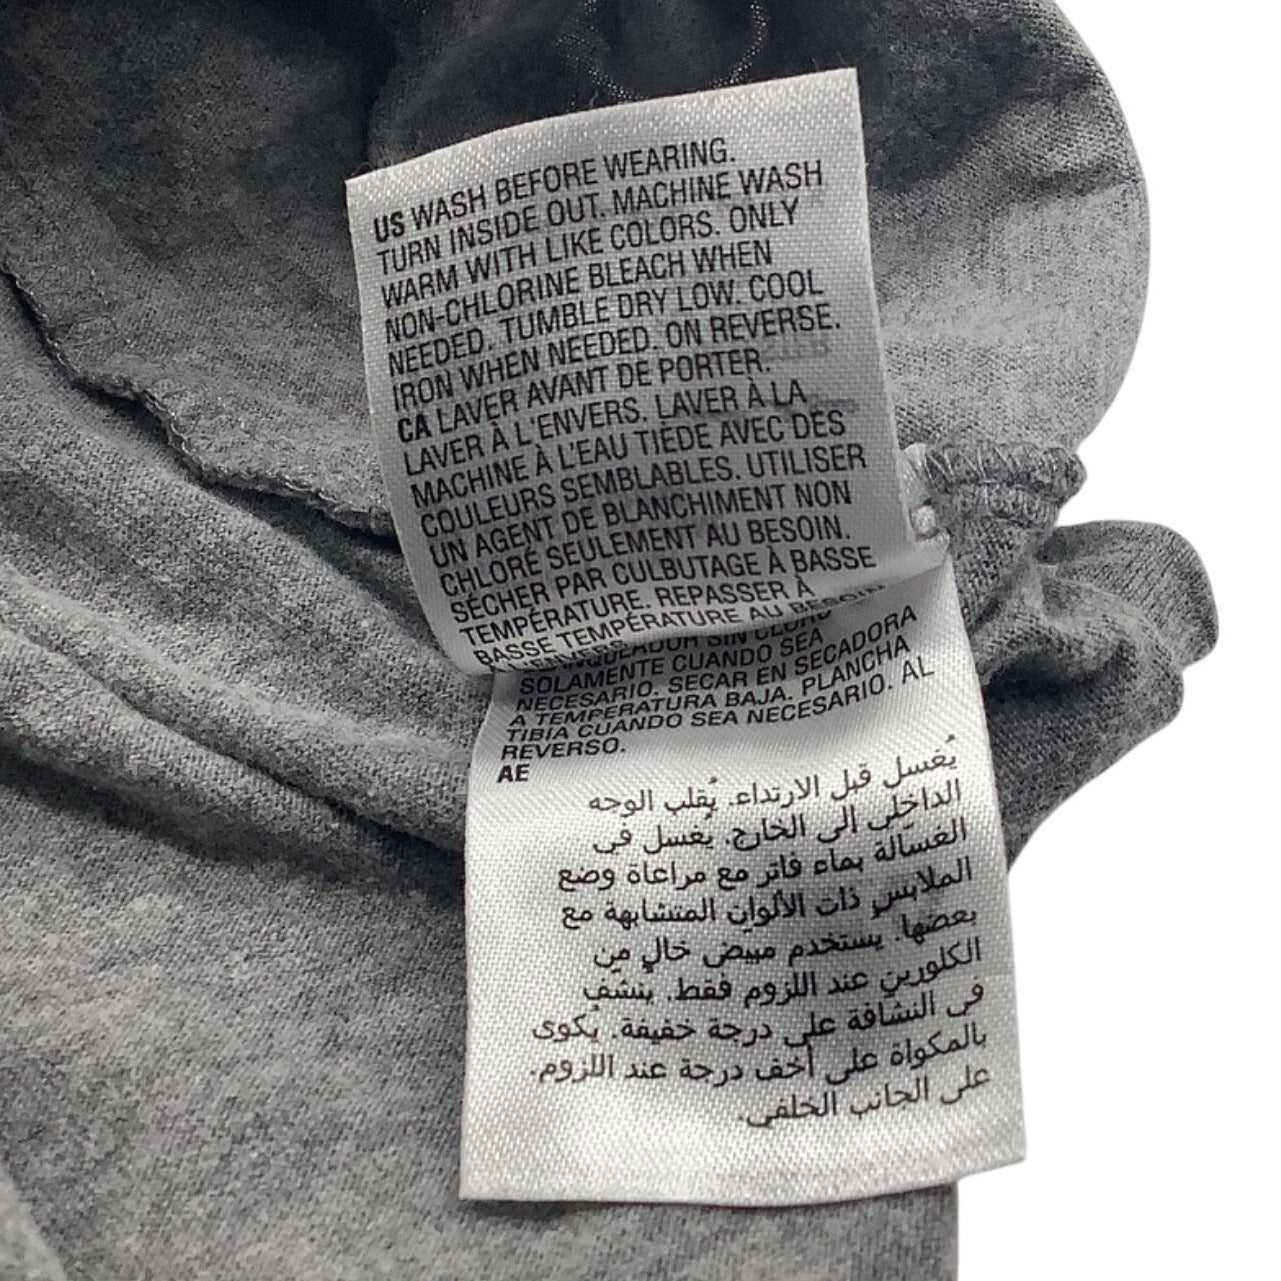 US WASH BEFORE WEARING.
TURN INSIDE OUT. MACHINE WASH
WARM WITH LIKE COLORS. ONLY
NON-CHLORINE BLEACH WHEN
NEEDED. TUMBLE DRY LOW. COOL
IRON WHEN NEEDED. ON REVERSE.
CA LAVER AVANT DE PORTER.
LAVER À L'ENVERS. LAVER À LA
MACHINE À L'EAU TIÈDE AVEC DES
COULEURS SEMBLABLES. UTILISER
UN AGENT DE BLANCHIMENT NON
CHLORÉ SEULEMENT AU BESOIN.
SÉCHER PAR CULBUTAGE À BASSE
TEMPÉRATURE. REPASSER À
BASSE TEMPÉRATURE AU BESOIN
SIN CLORO
SOLAMENTE CUANDO SEA
NECESARIO. SECAR EN SECADORA
A TEMPERATURA BAJA. PLANCHA
TIBIA CUANDO SEA NECESARIO. AL
REVERSO.
AE
يُغسل قبل الارتداء. يُقلب الوجه
الداخلي إلى الخارج. يُغسل في
الغسّالة بماء فاتر مع مراعاة وضع
الملابس ذات الألوان المتشابهة مع
بعضها. يستخدم مبيض خالٍ من
الكلورين عند اللزوم فقط. يُنشف
في النشافة على درجة خفيفة. يُكوى
بالمكواة على أخف درجة عند اللزوم.
على الجانب الخلفي.